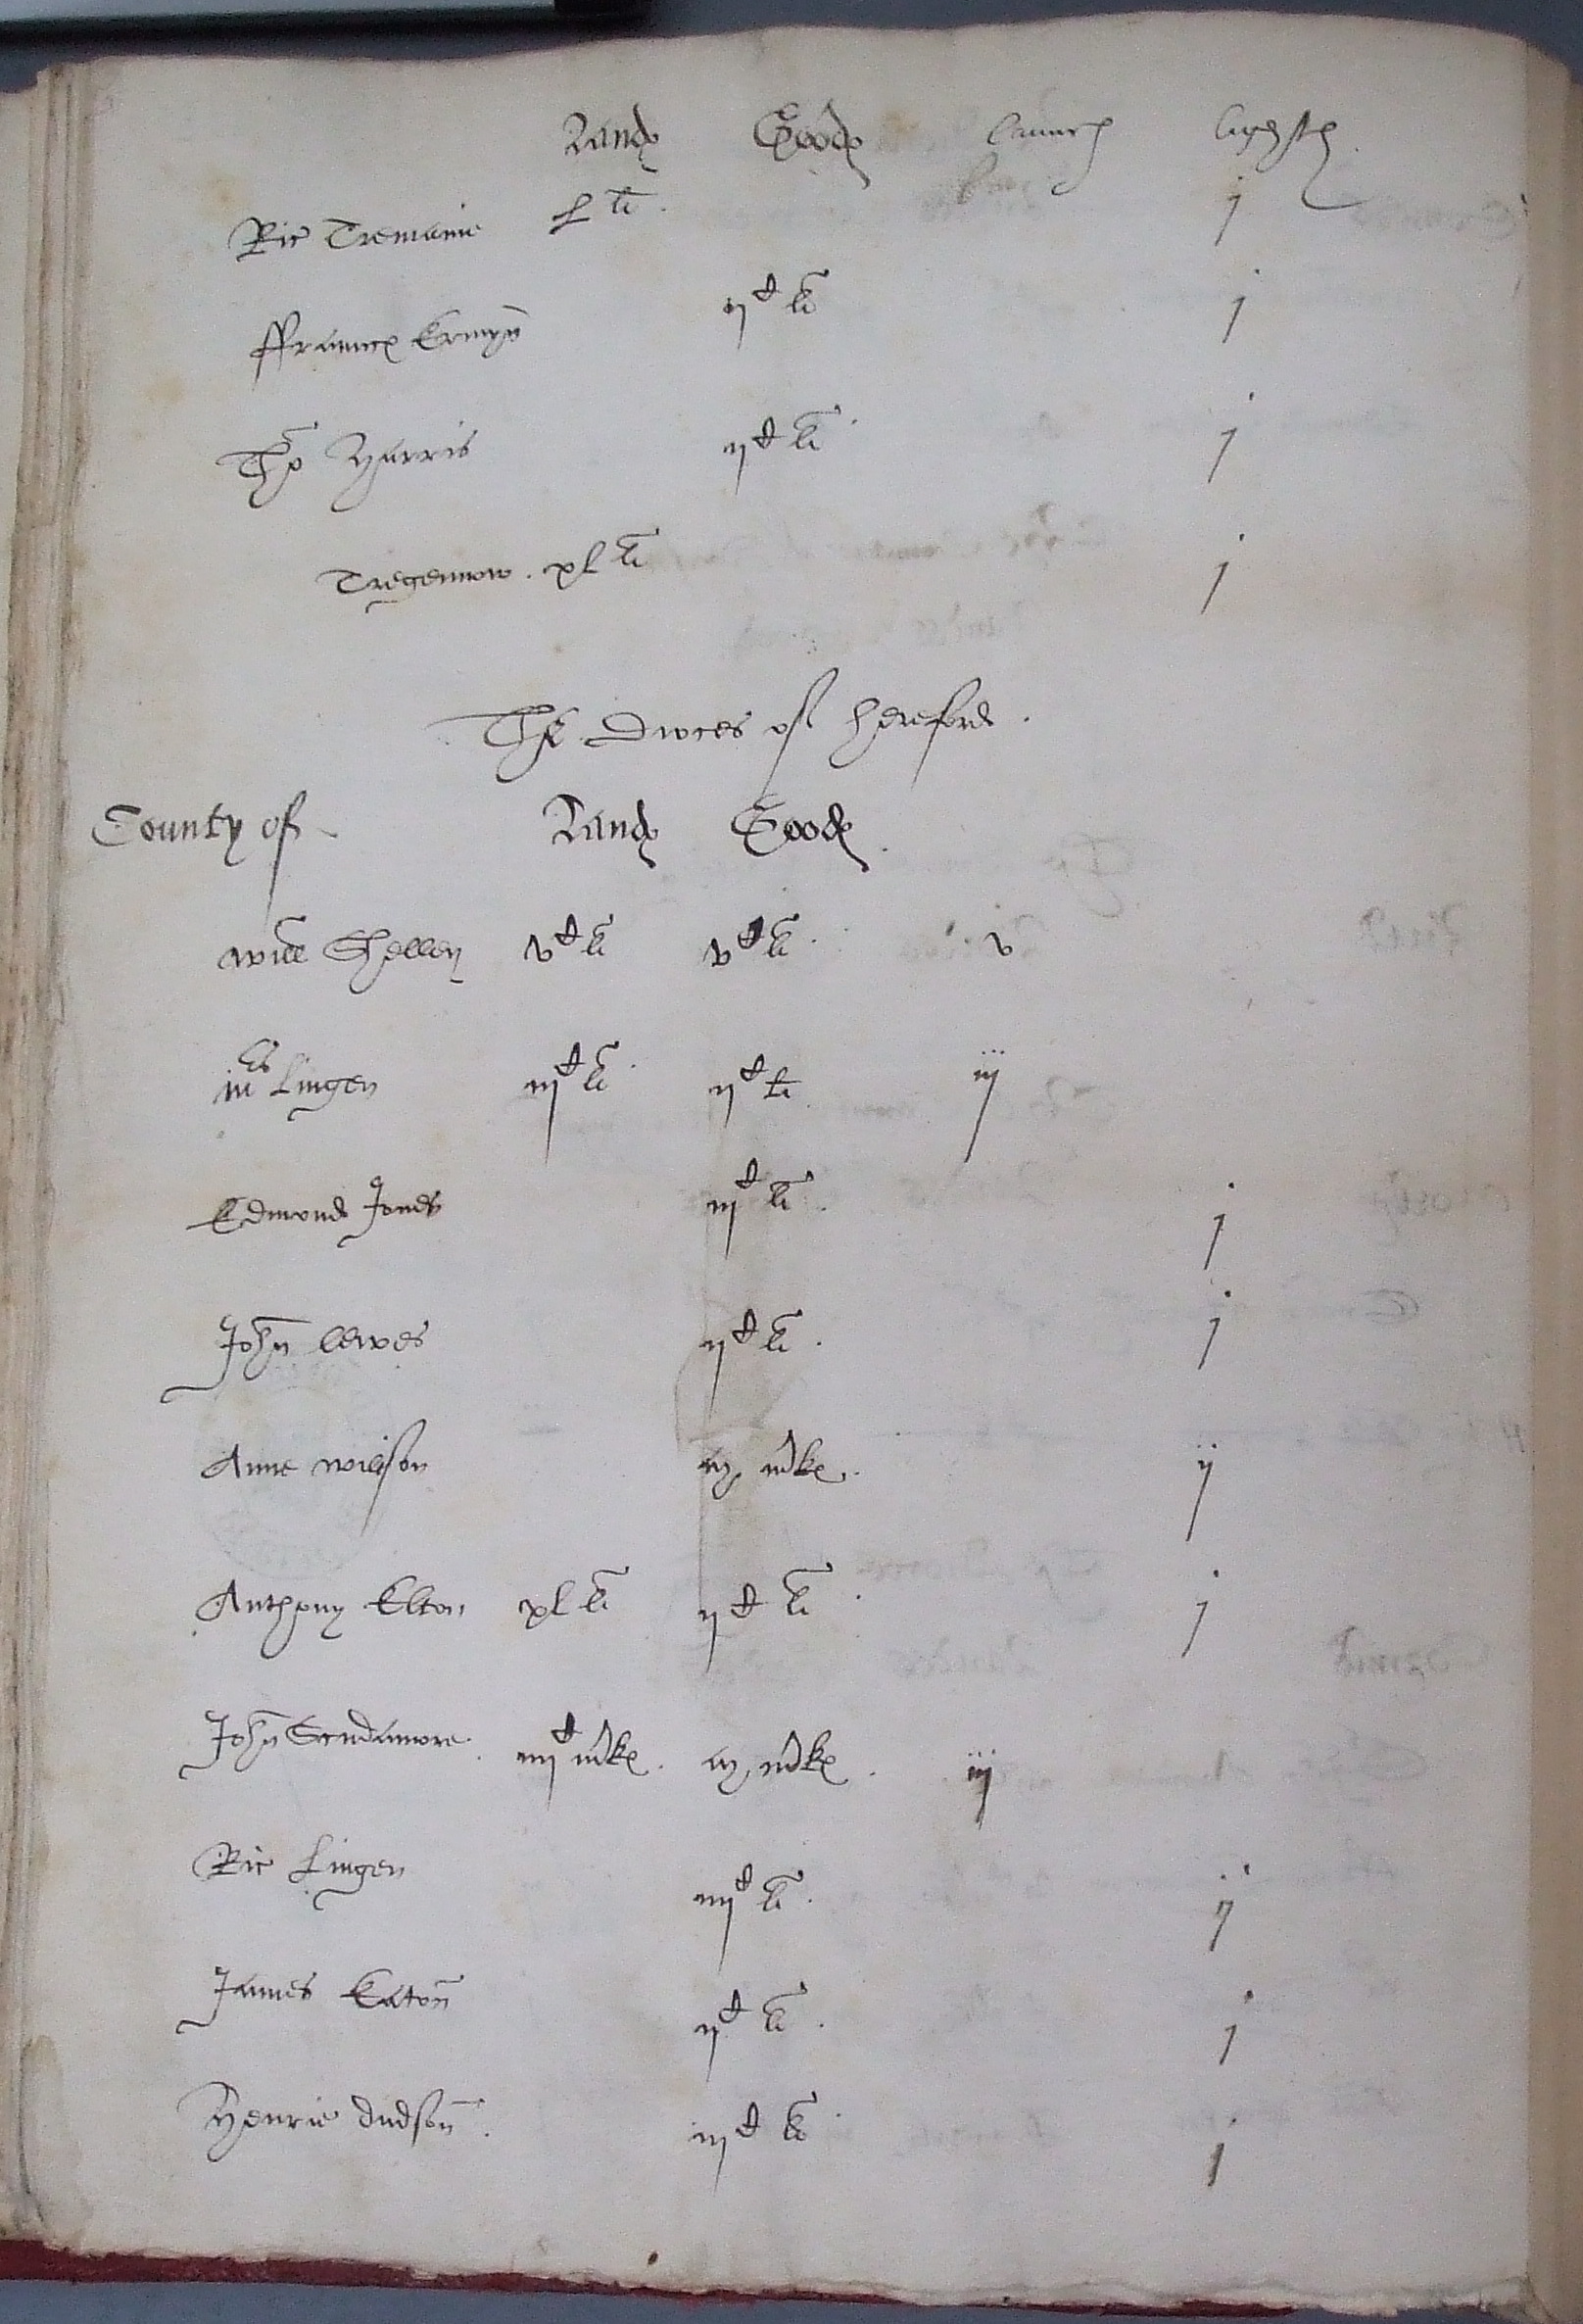 Landes Goodes launces light horses
Ric Tremaine l li. j
ffraunces Ermyn ijC li j
Tho Harris ijC li. j
Tregennow. xl li j
The Dioces of hereford.
County of Landes Goodes.
Will Shelley vC li vC li. v
Lingen iijC li. ijC li iij
Edmond Jones iijC li. j
John lewes ijC li. j
Anne willson mrkes. ij
Anthony Elton xl li ijC li. j
John Scudamore. iiijC mrkes. mrkes. iij
Ric Lingen iiijC li. ij
James Eaton ijC li. j
Henrie dudson. iijC li. j